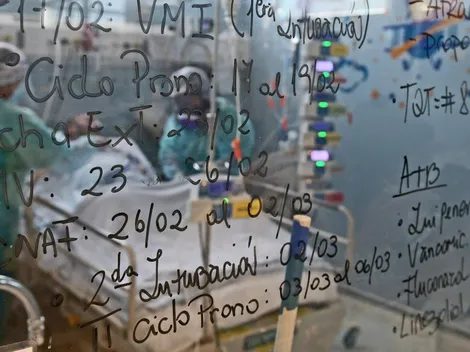 17/02: VMI (1era Intubación)
Ciclo Prono: 17 al 19/02
cha ExT: 25/02
IV: 23 26/02
NAF: 26/02 al 02/03
2da Intubación: 02/03
II Ciclo Prono: 03/03 al 06/03
Propo
TQT: #8
ATB
Vancomic
Fluconazol
Linezolid